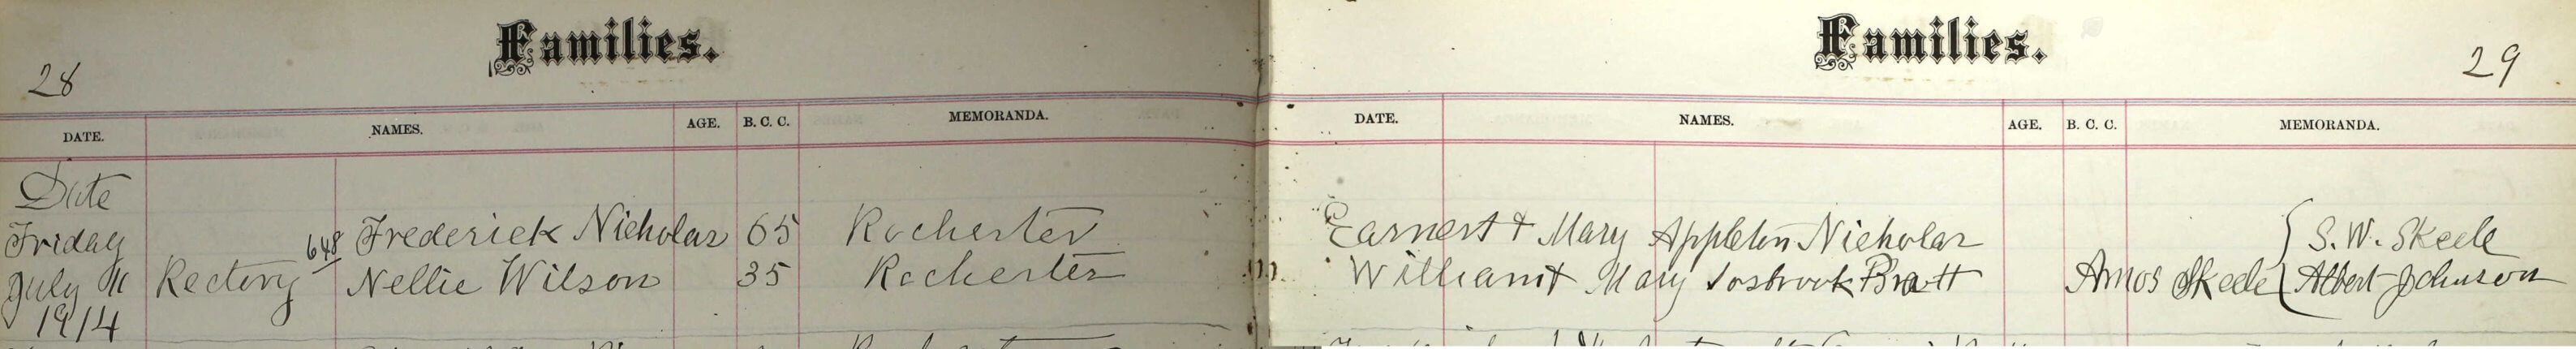 Families.
28
DATE. NAMES. AGE. B. C. C. MEMORANDA.
Date
Friday
July
1914
Rectory
648 Frederick Nicholas 65 Rochester
Nellie Wilson 35 Rochester
Families.
29
DATE. NAMES. AGE. B. C. C. MEMORANDA.
Earnest + Mary Appleton Nicholas
William + Mary Bratt
Amos Skeele { S. W. Skeele
Albert Johnson